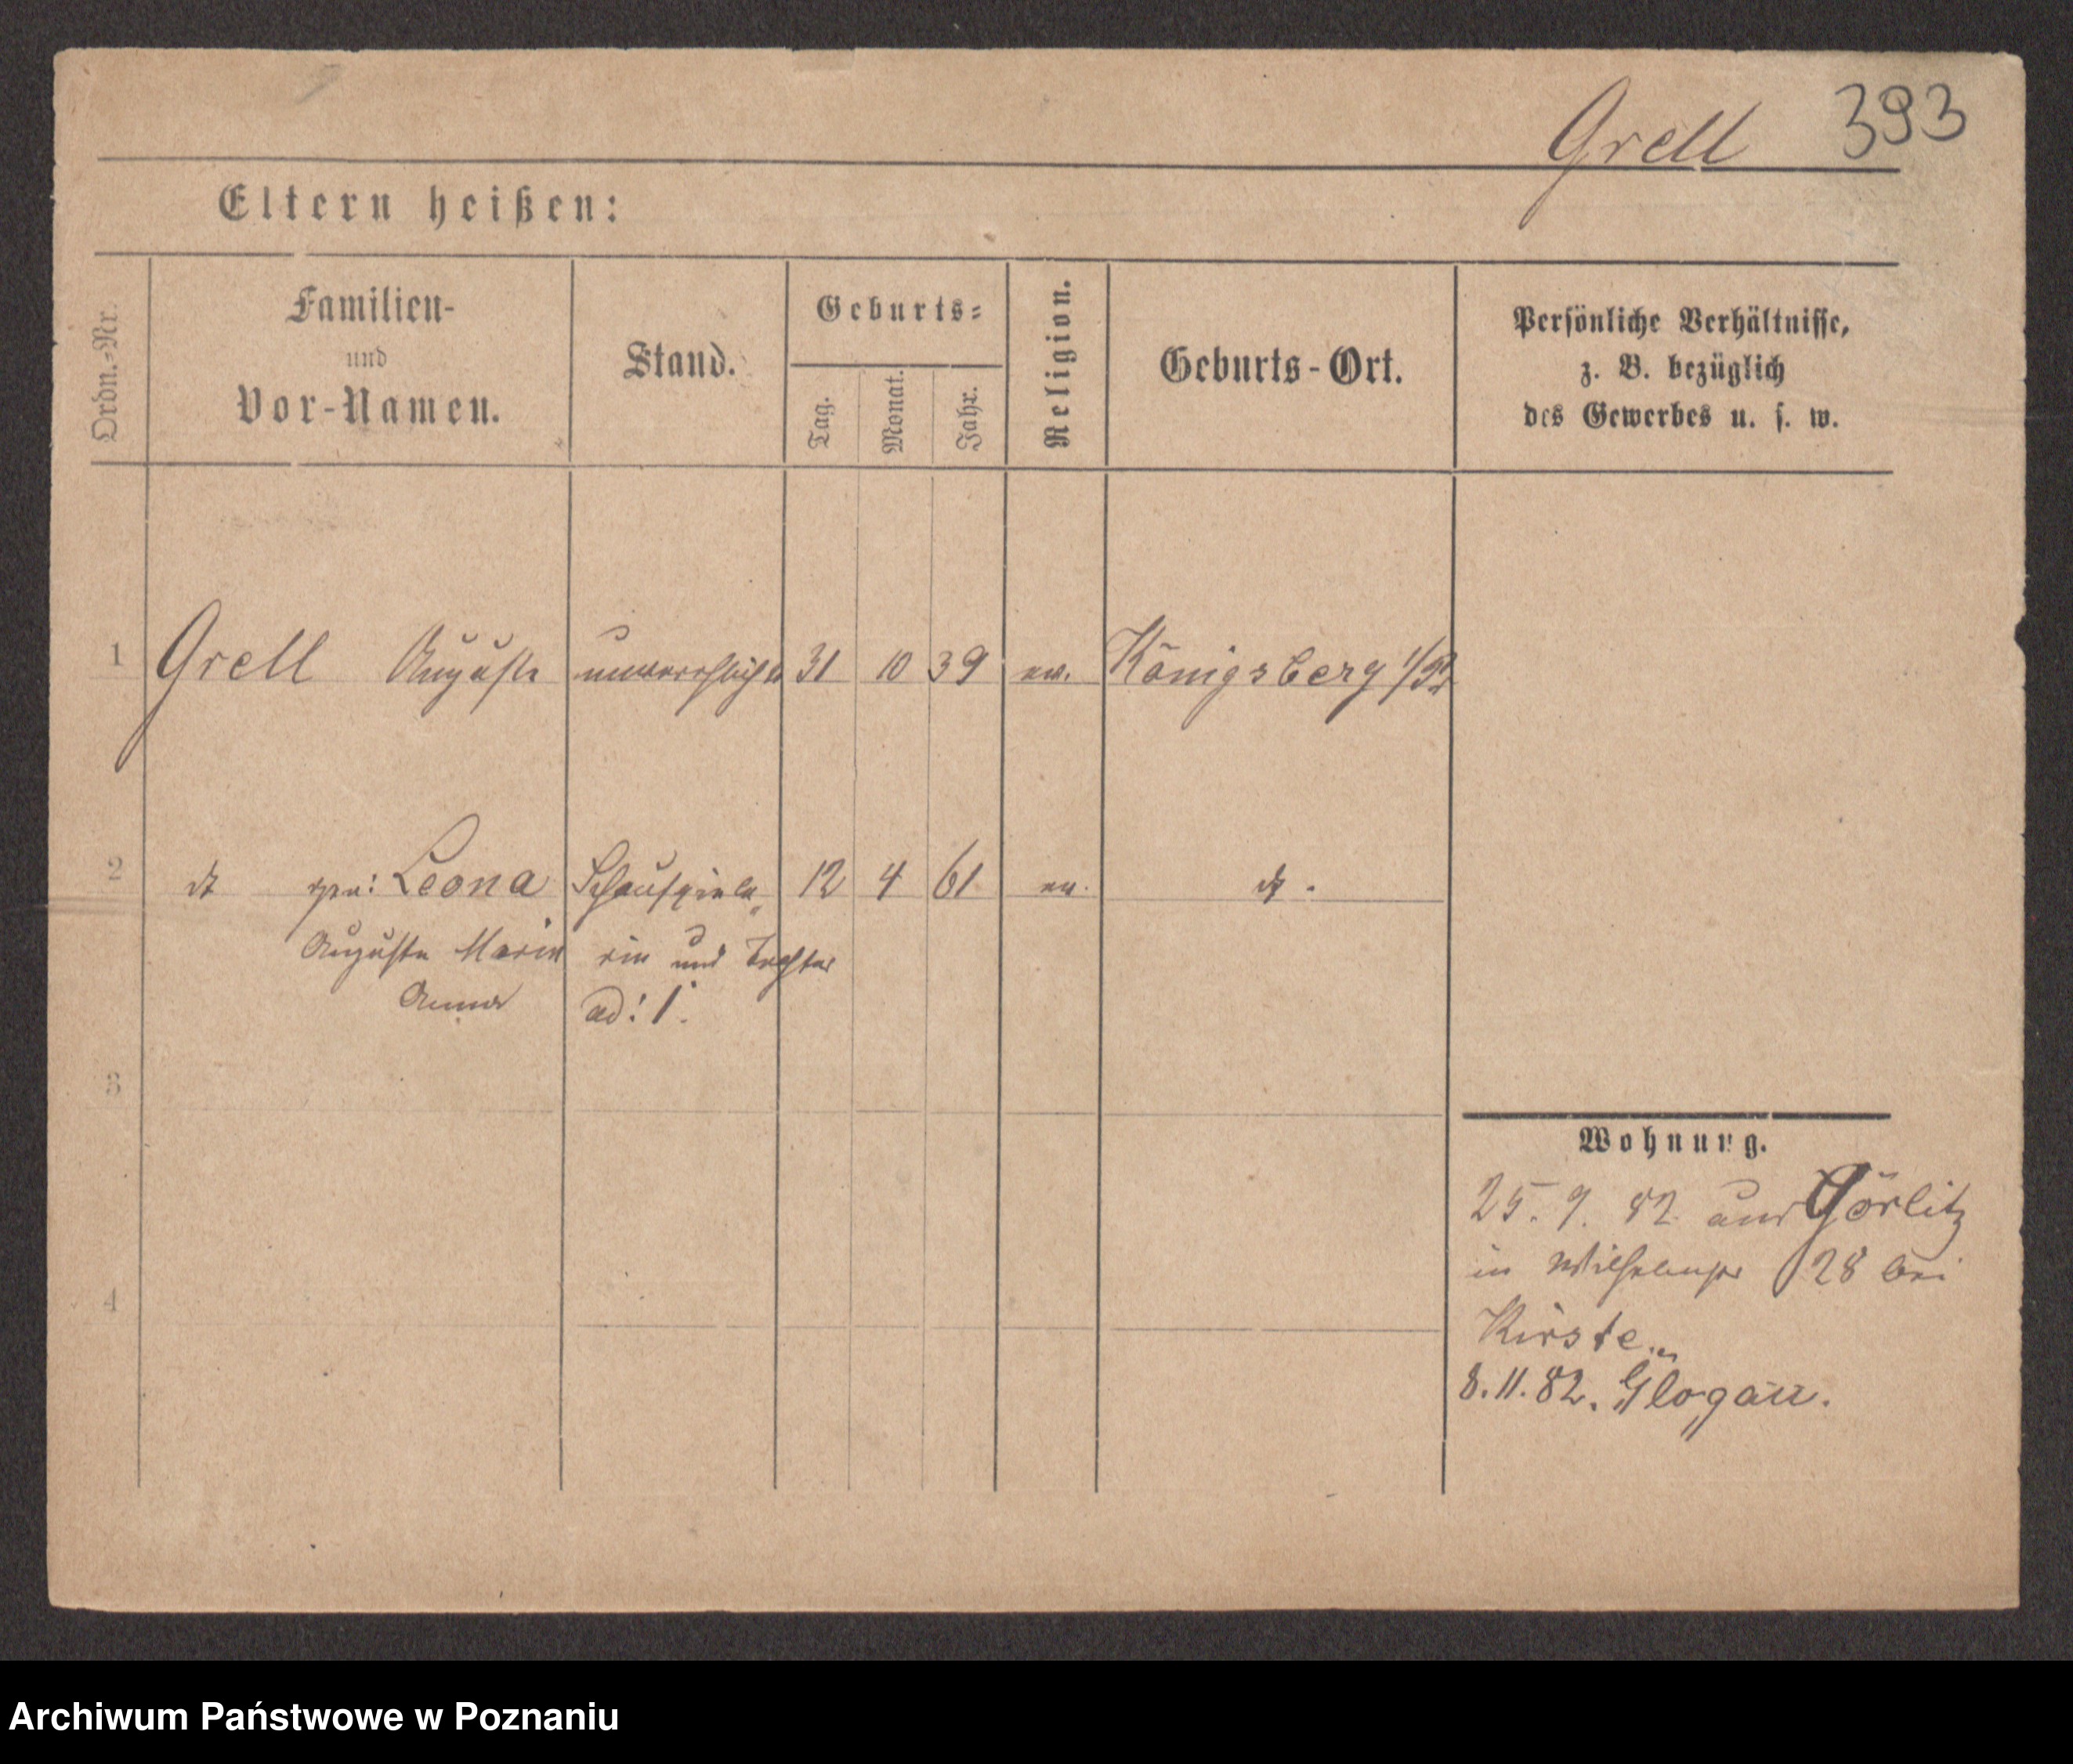 Grell 393
Eltern heißen:
Ordn.-Nr.
Familien-
und
Vor-Namen.
Stand.
Geburts-
Tag.
Monat.
Jahr.
Religion.
Geburts-Ort.
Persönliche Verhältnisse,
z. B. bezüglich
des Gewerbes u. s. w.
1 Grell Auguste unverehelicht 31 10 39 ev. Königsberg i/Pr
2 dt gen: Leona Schauspiele„ 12 4 61 ev. dt.
Auguste Marie rin und Tochter
Anna ad: 1.
3
Wohnung.
25. 9. 82 aus Görlitz
in Wilhelmstr 28 bei
4
Kirste
8. 11. 82. Glogau.
Archiwum Państwowe w Poznaniu